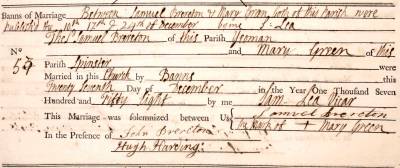 Banns of Marriage Between Samuel Brereton & Mary Green both of this Parish were
Published the 10th 17th & 24th of December by me S: Lea
The sd Samuel Brereton of this Parish Yeoman
and Mary Green of this
No 59 Parish Spinster were
Married in this Church by Banns
Twenty Seventh Day of December in the Year One Thousand Seven
Hundred and Fifty Eight by me Sam Lea Vicar
This Marriage was solemnized between Us Samuel Brereton
The Mark of + Mary Green
In the Presence of John Brereton
Hugh Harding